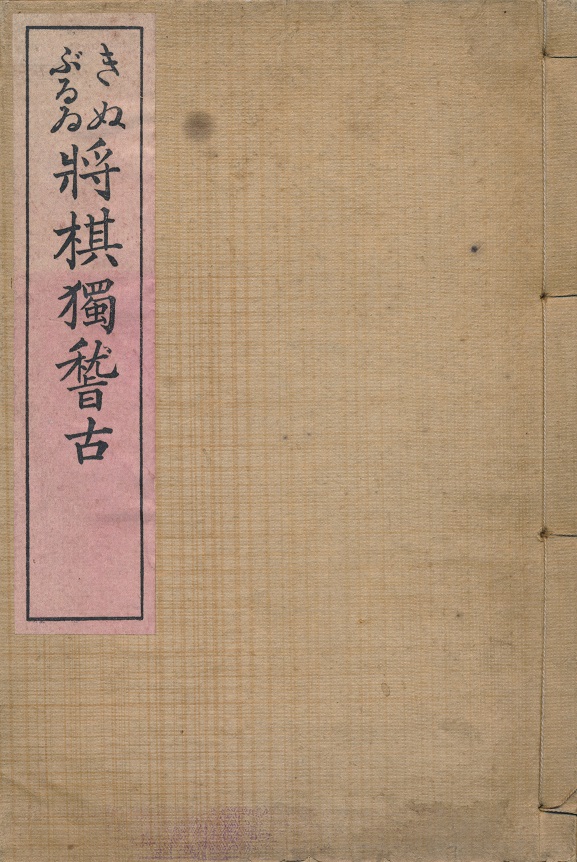 きぬ
ぶるゐ
將棋獨稽古